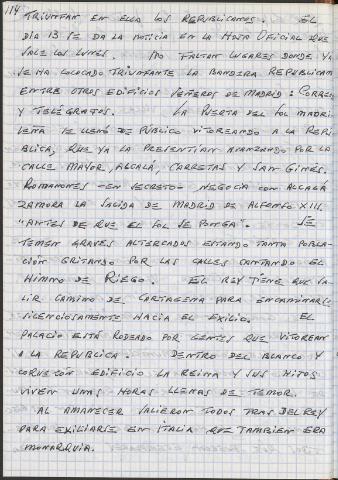 114
TRIUNFAN EN ELLA LOS REPUBLICANOS. EL
DIA 13 SE DA LA NOTICIA EN LA HOJA OFICIAL QUE
SALE LOS LUNES. NO FALTAN LUGARES DONDE YA
SE HA COLOCADO TRIUNFANTE LA BANDERA REPUBLICAN
ENTRE OTROS EDIFICIOS SEÑEROS DE MADRID: CORREOS
Y TELÉGRAFOS. LA PUERTA DEL SOL MADRI
LEÑA SE LLENÓ DE PÚBLICO VITOREANDO A LA REPÚ
BLICA, QUE YA LA PRESENTIAN AVANZANDO POR LA
CALLE MAYOR, ALCALÁ, CARRETAS Y SAN GINÉS.
ROMANONES -EN SECRETO- NEGOCIA CON ALCALÁ
ZAMORA LA SALIDA DE MADRID DE ALFONSO XIII,
"ANTES DE QUE EL SOL SE PONGA". SE
TEMEN GRAVES ALTERCADOS ESTANDO TANTA POBLA-
CIÓN GRITANDO POR LAS CALLES CANTANDO EL
HIMNO DE RIEGO. EL REY TIENE QUE SA-
LIR CAMINO DE CARTAGENA PARA ENCAMINARSE
SILENCIOSAMENTE HACIA EL EXILIO. EL
PALACIO ESTÁ RODEADO POR GENTES QUE VITOREAN
A LA REPUBLICA. DENTRO DEL BLANCO Y
CORVETÓN EDIFICIO LA REINA Y SUS HIJOS
VIVEN UNAS HORAS LLENAS DE TEMOR.
AL AMANECER SALIERON TODOS TRAS DEL REY
PARA EXILIARSE EN ITALIA QUE TAMBIEN ERA
MONARQUIA.